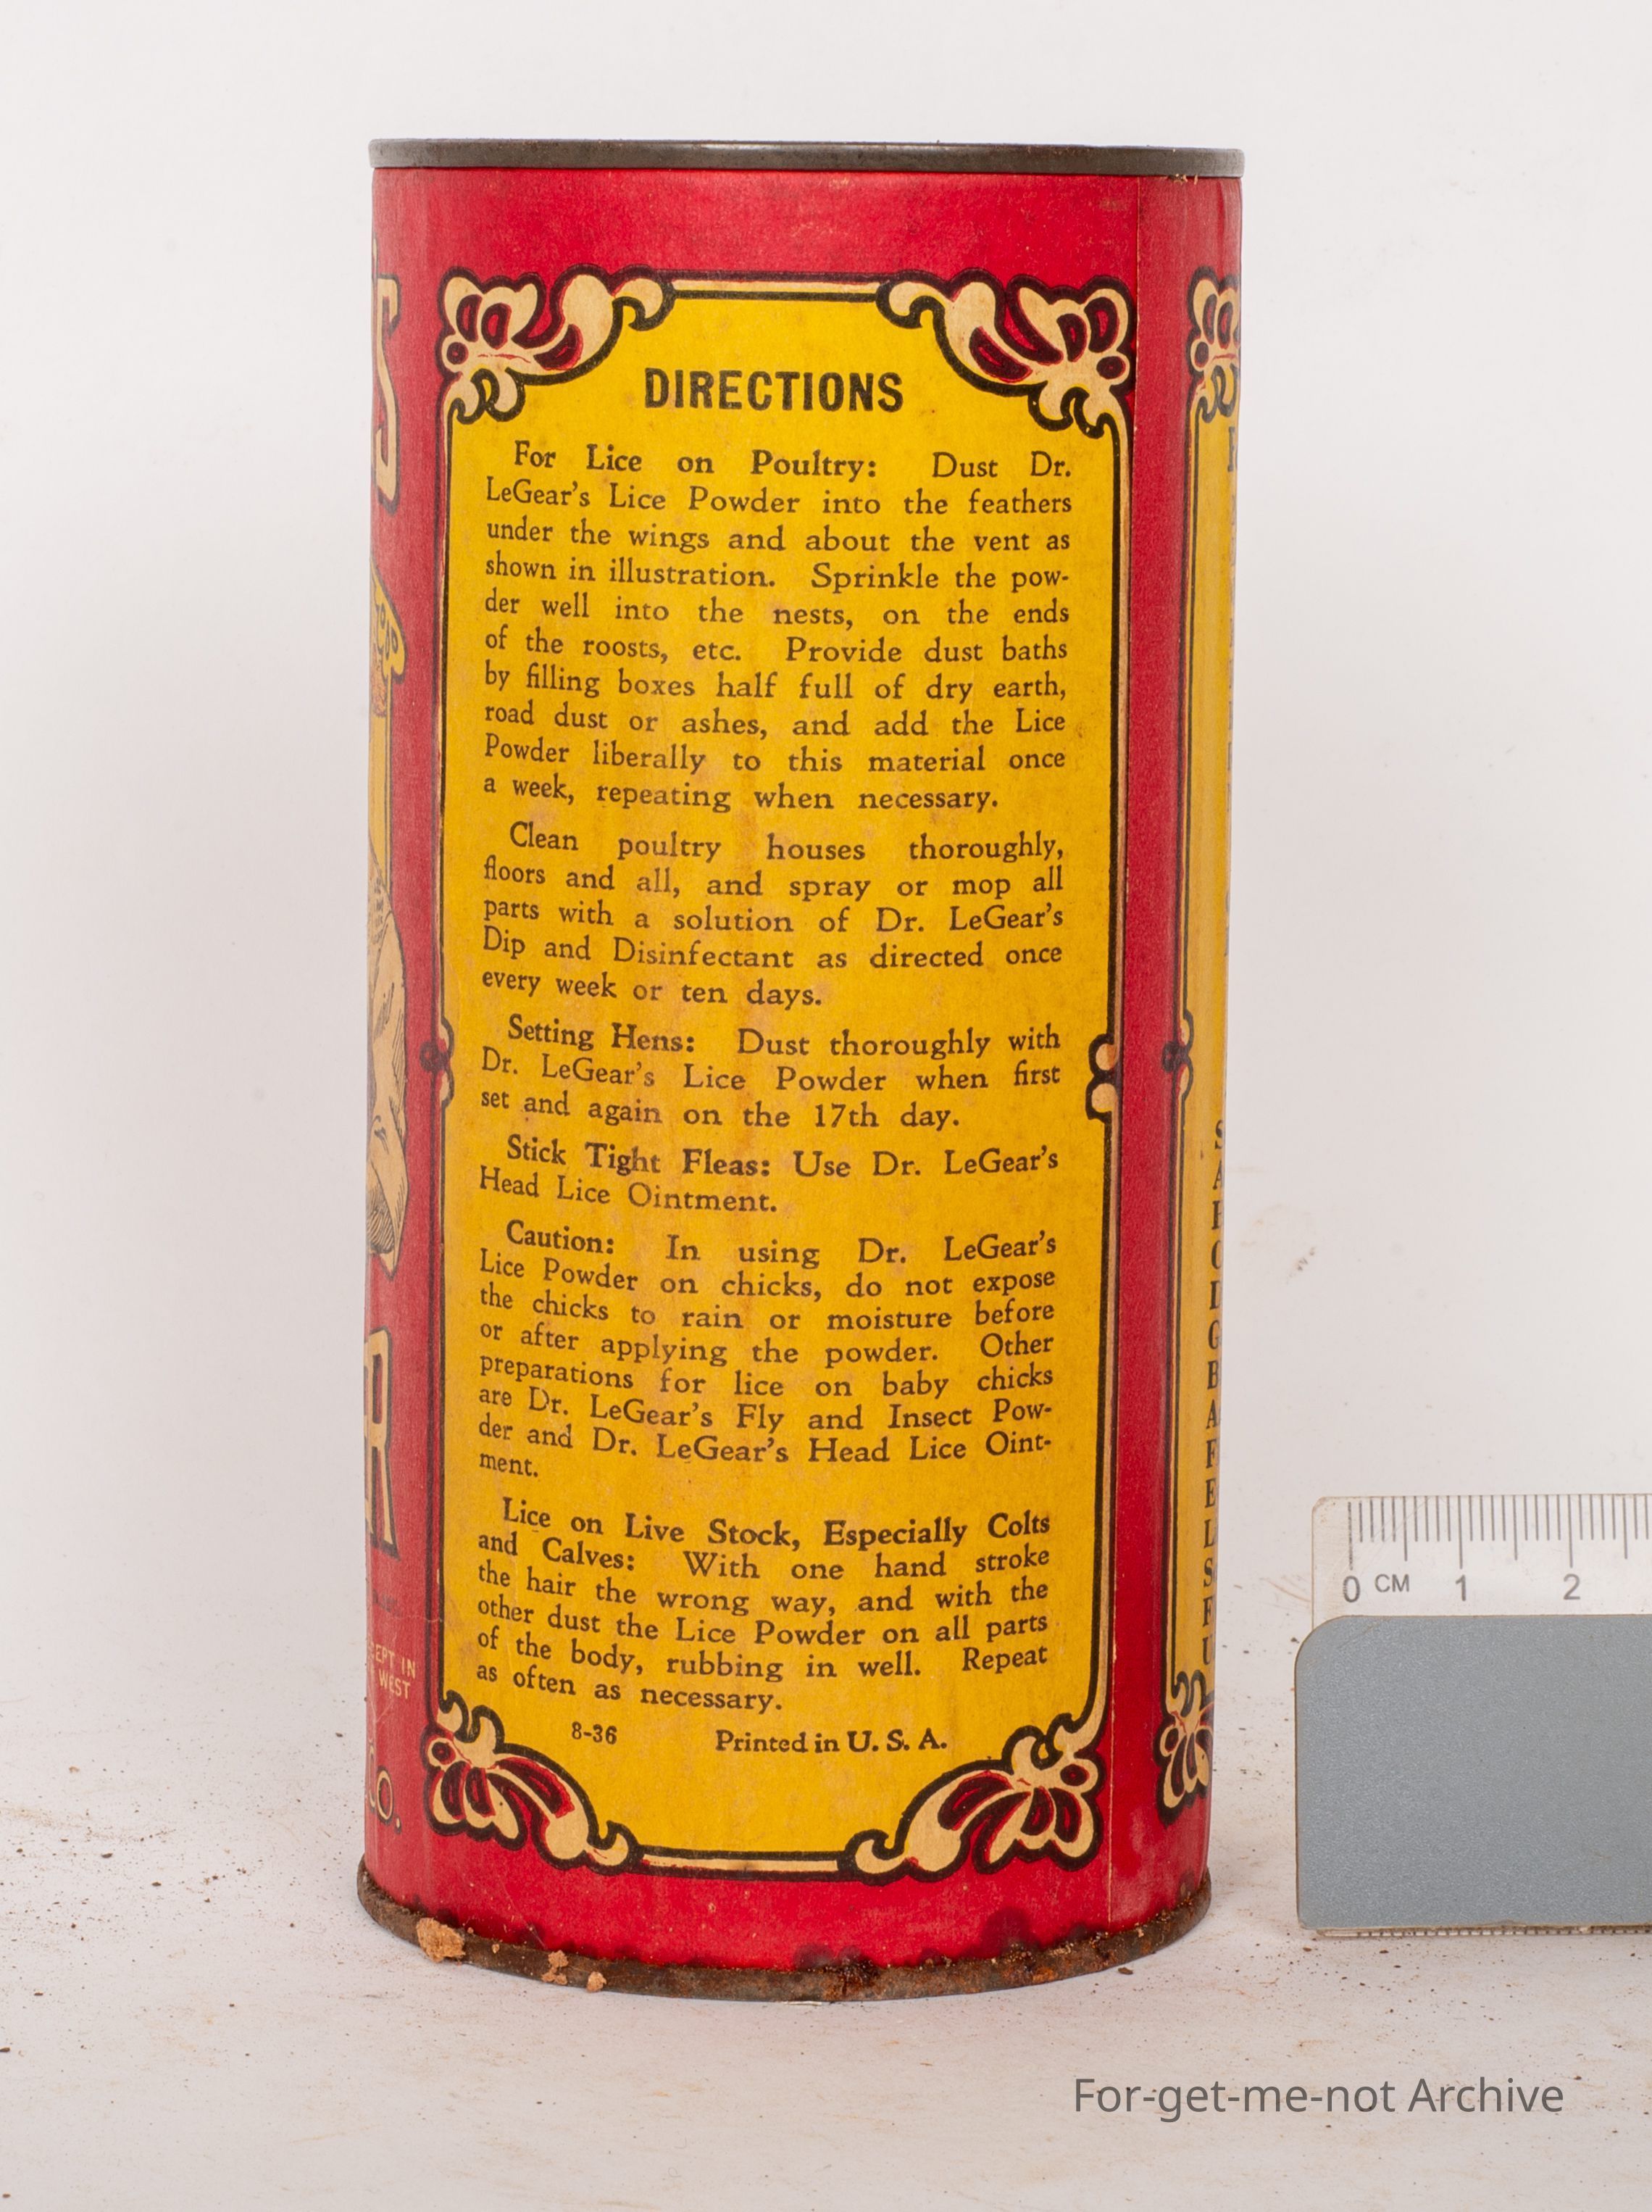 DIRECTIONS
For Lice on Poultry: Dust Dr.
LeGear's Lice Powder into the feathers
under the wings and about the vent as
shown in illustration. Sprinkle the pow-
der well into the nests, on the ends
of the roosts, etc. Provide dust baths
by filling boxes half full of dry earth,
road dust or ashes, and add the Lice
Powder liberally to this material once
a week, repeating when necessary.
Clean poultry houses thoroughly,
floors and all, and spray or mop all
parts with a solution of Dr. LeGear's
Dip and Disinfectant as directed once
every week or ten days.
Setting Hens: Dust thoroughly with
Dr. LeGear's Lice Powder when first
set and again on the 17th day.
Stick Tight Fleas: Use Dr. LeGear's
Head Lice Ointment.
Caution: In using Dr. LeGear's
Lice Powder on chicks, do not expose
the chicks to rain or moisture before
or after applying the powder. Other
preparations for lice on baby chicks
are Dr. LeGear's Fly and Insect Pow-
der and Dr. LeGear's Head Lice Oint-
ment.
Lice on Live Stock, Especially Colts
and Calves: With one hand stroke
the hair the wrong way, and with the
other dust the Lice Powder on all parts
of the body, rubbing in well. Repeat
as often as necessary.
8-36 Printed in U. S. A.
IN
WEST
0 CM 1 2
For-get-me-not Archive